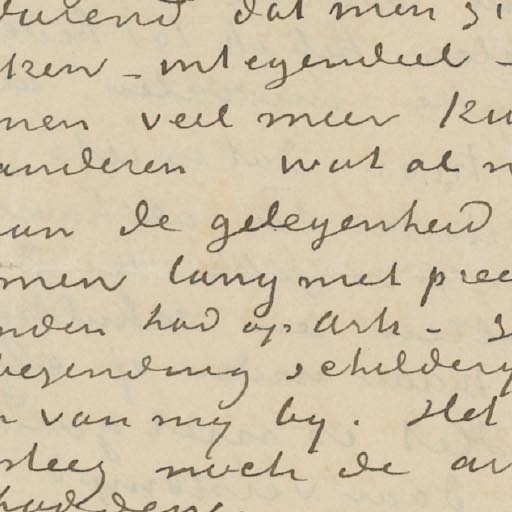 durend dat men zi
ken - integendeel -
men veel meer ku
anderen wat al m
aan de gelegenheid
men lang met pree
nden had op Arti - z
bezending schildery
n van my by. Het
steeg noch de ar
hadden.